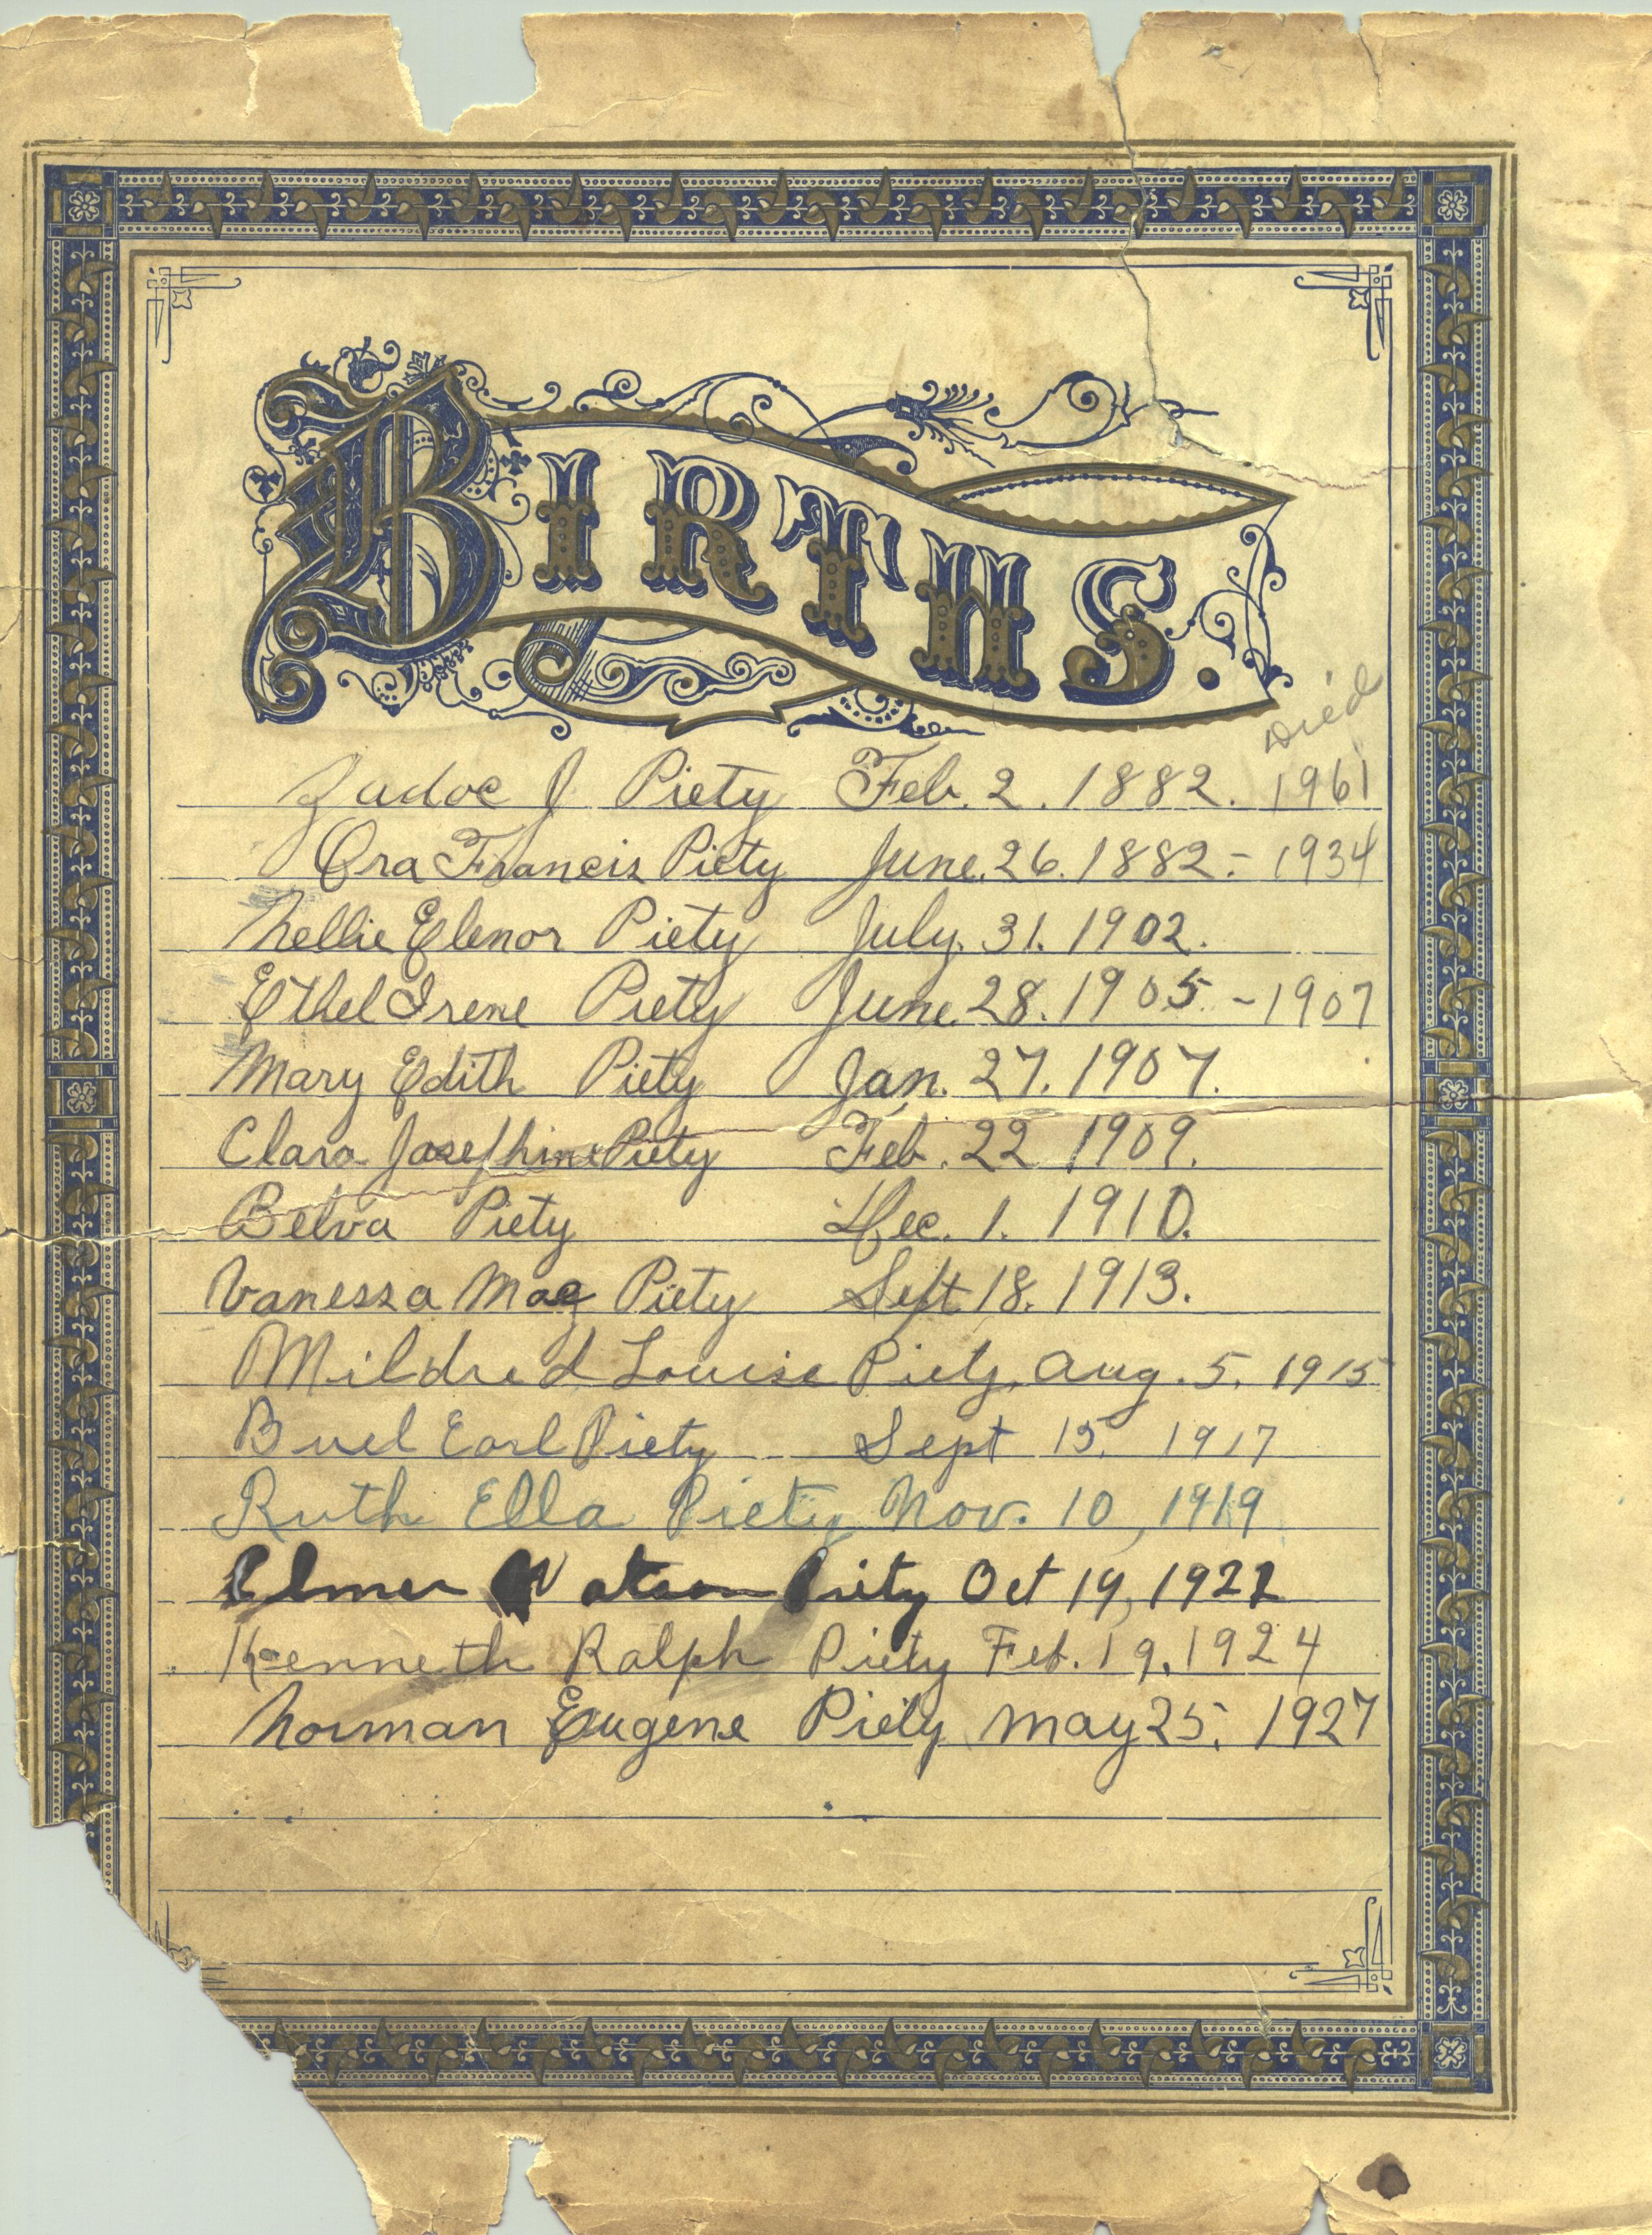 BIRTHS.
Died
Zadoc J Piety Feb. 2. 1882. 1961
Ora Francis Piety June. 26. 1882. - 1934
Nellie Elenor Piety July. 31. 1902.
Ethel Irene Piety June. 28. 1905. - 1907
Mary Edith Piety Jan. 27. 1907.
Clara Josephine Piety Feb. 22 1909.
Belva Piety Dec. 1. 1910.
Vanessa Mae Piety Sept 18. 1913.
Mildred Louise Piety, Aug. 5. 1915
Buel Earl Piety Sept 15. 1917
Ruth Ella Piety Nov. 10, 1919
Elmer Watson Piety Oct 19, 1921
Kenneth Ralph Piety Feb. 19. 1924
Norman Eugene Piety May 25, 1927